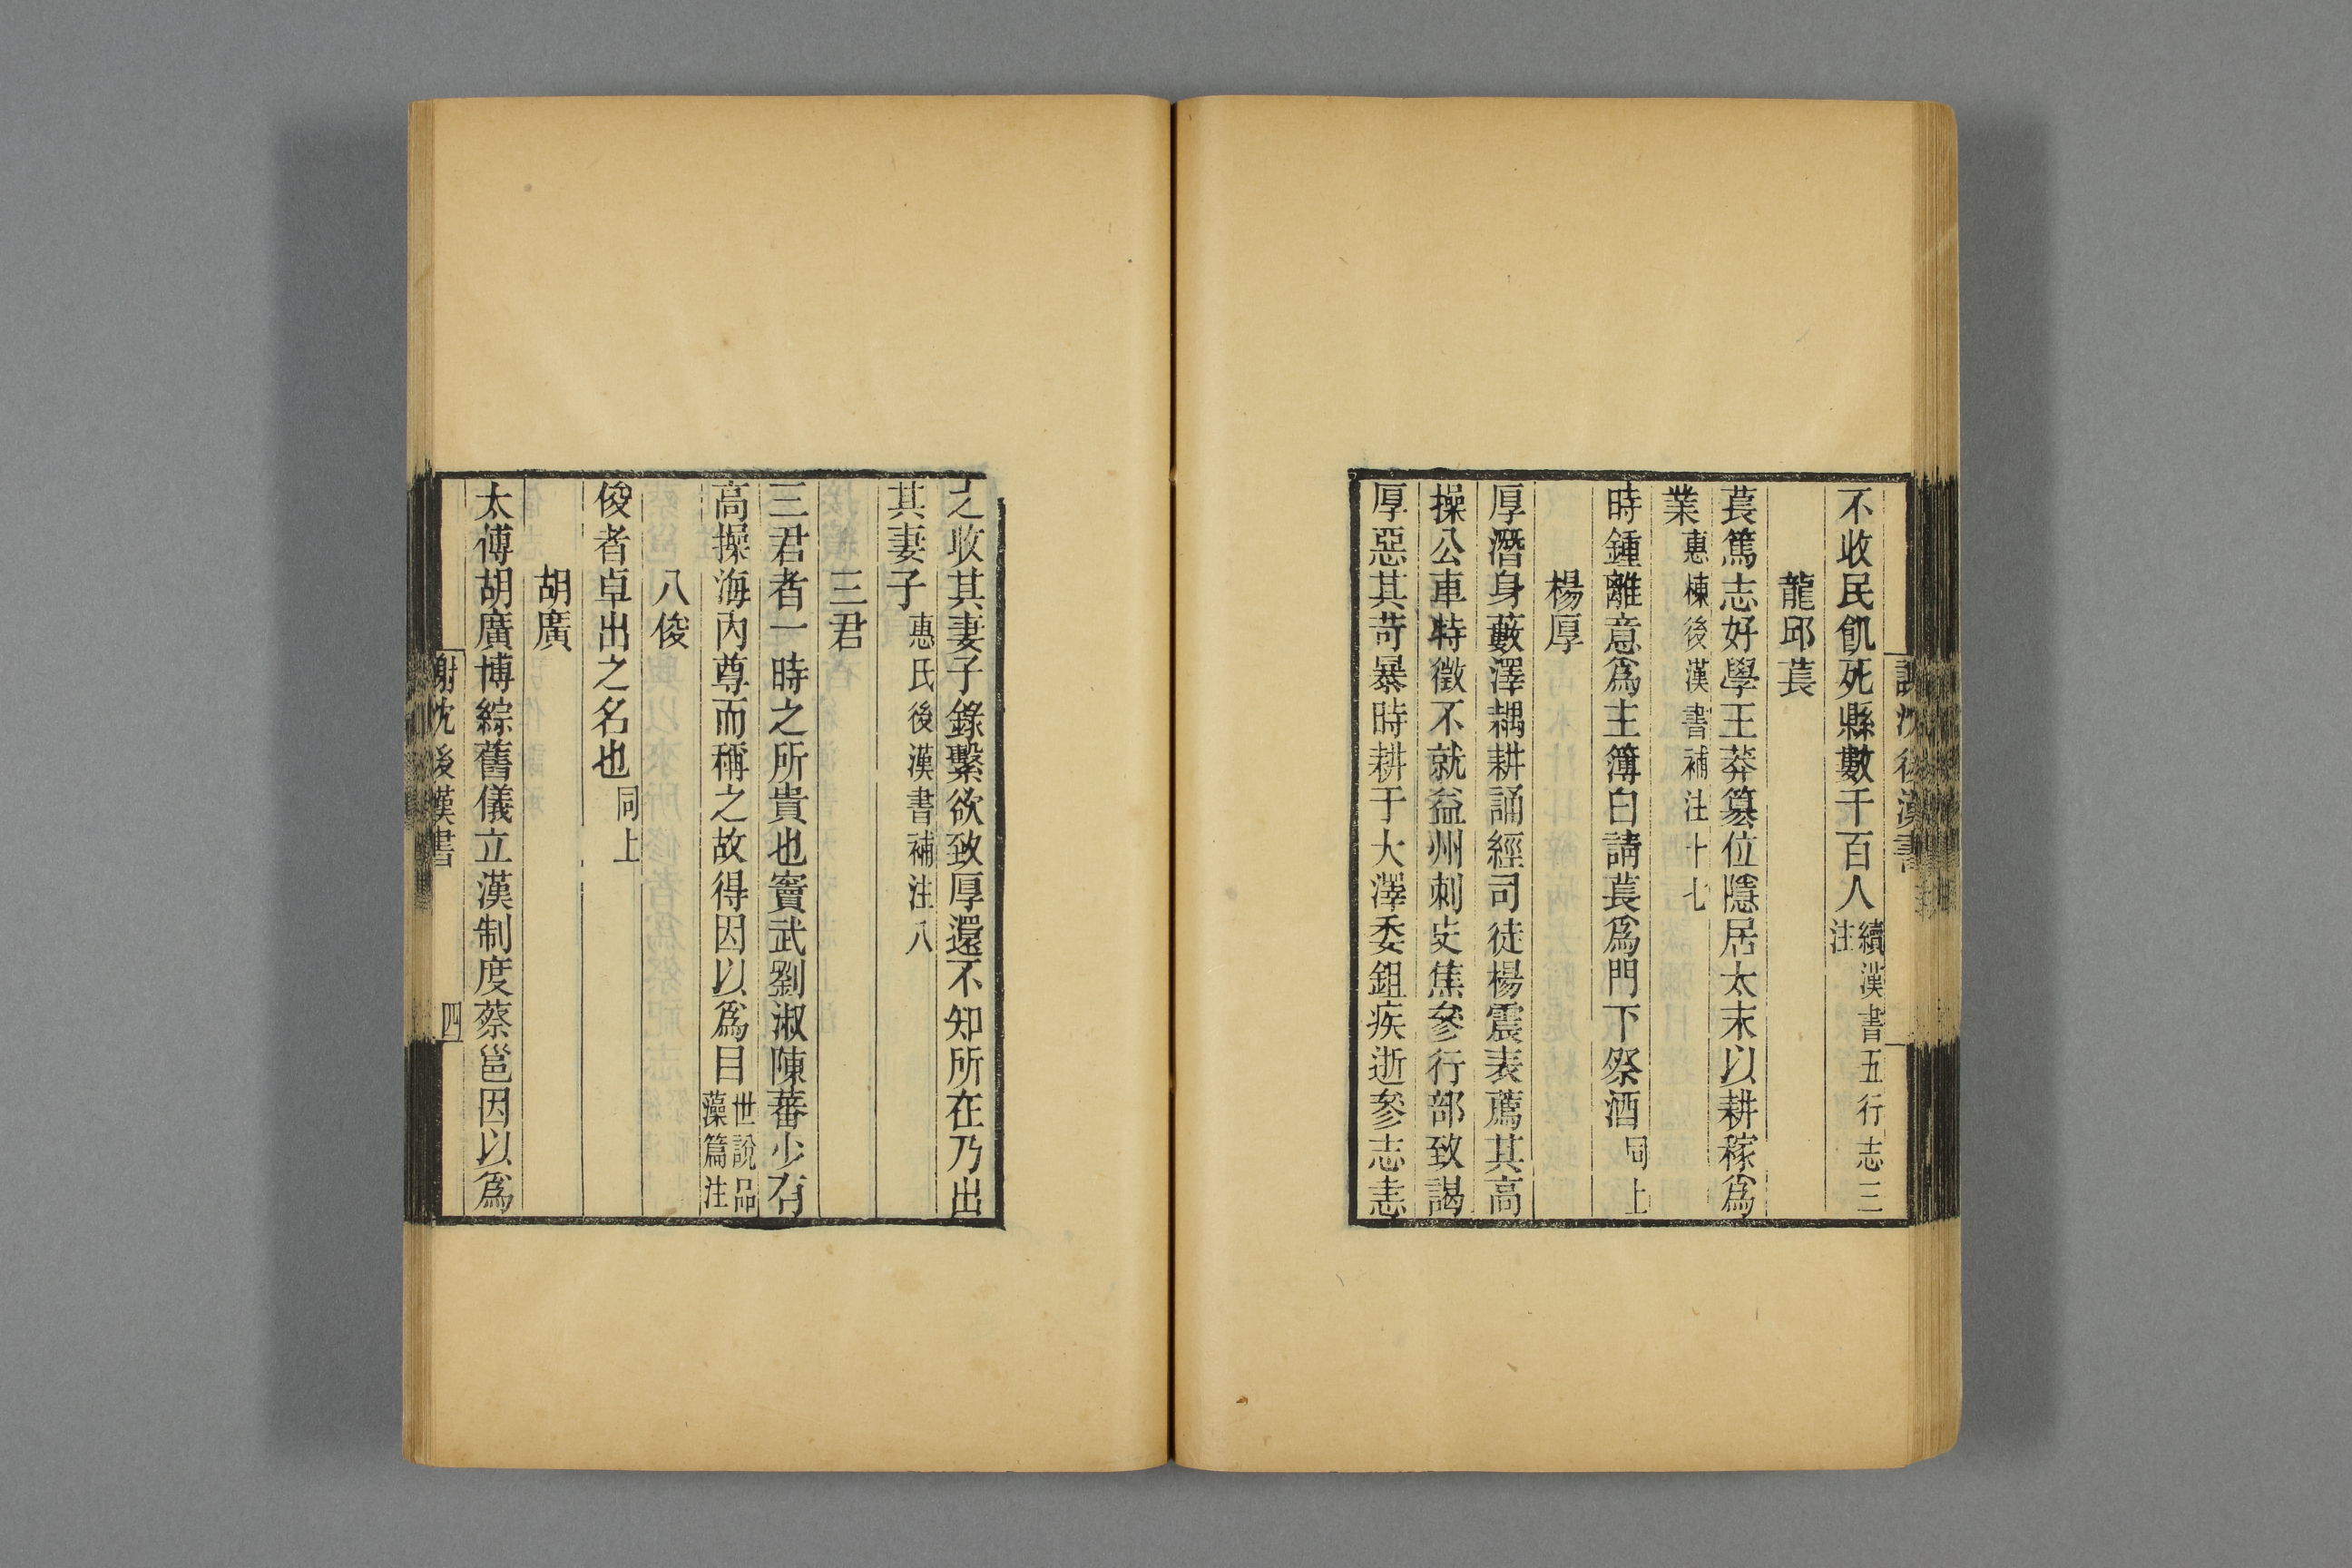 謝沈後漢書
不收民飢死縣數千百人續漢書五行志三注
龍邱萇
萇篤志好學王莽篡位隱居太末以耕稼爲
業惠棟後漢書補注十七
時鍾離意爲主簿白請萇爲門下祭酒同上
楊厚
厚潛身藪澤耦耕誦經司徒楊震表薦其高
操公車特徵不就益州刺史焦參行部致謁
厚惡其苛暴時耕于大澤委鉏疾逝參志恚
之收其妻子錄繫欲致厚還不知所在乃出
其妻子惠氏後漢書補注八
三君
三君者一時之所貴也竇武劉淑陳蕃少有
高操海內尊而稱之故得因以爲目世說品藻篇注
八俊
俊者卓出之名也同上
胡廣
太傅胡廣博綜舊儀立漢制度蔡邕因以爲
謝沈後漢書 四